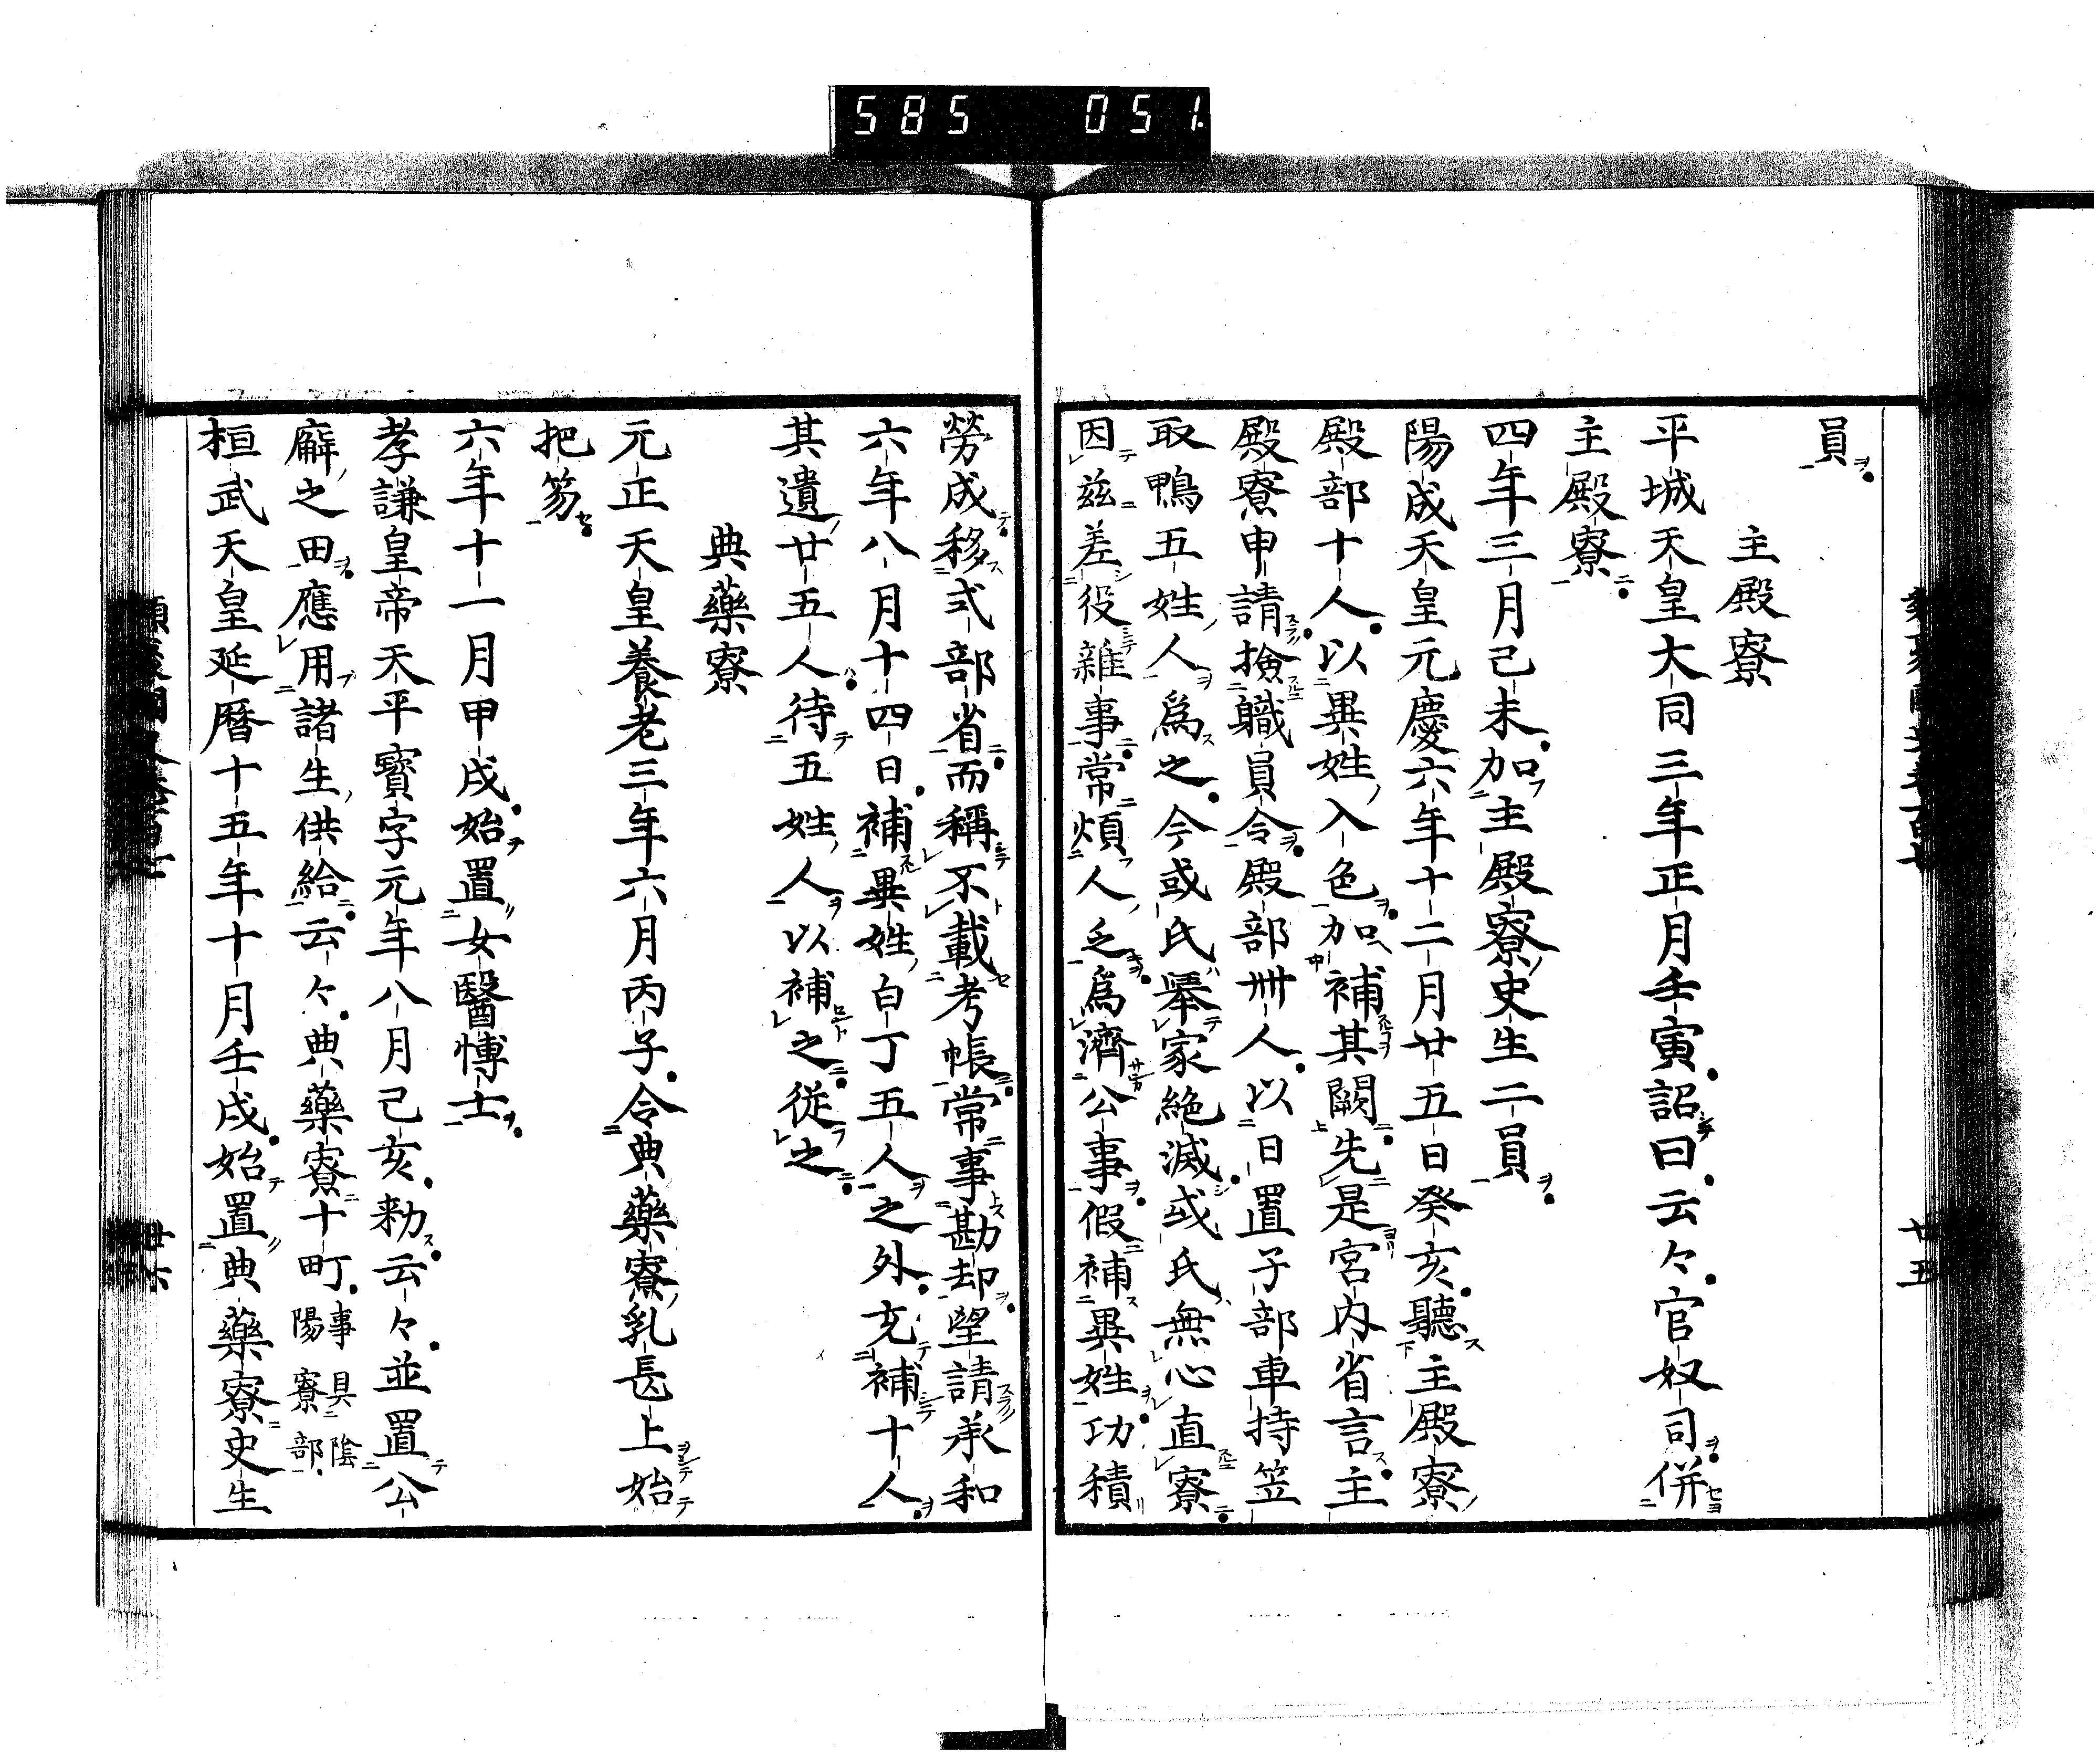 585 051
員
主殿寮
平城天皇大同三年正月壬寅詔曰云々官奴司併
主殿寮
四年三月己未加主殿寮史生二員
陽成天皇元慶六年十二月廿五日癸亥聽主殿寮
殿部十人以異姓入色加補其闕先是宮内省言主
殿寮申請撿職員令殿部卌人以日置子部車持笠
取鴨五姓人爲之今或氏擧家絶滅或氏無心直寮
因茲差役雜事常煩人乏爲濟公事假補異姓功積
勞成移式部省而稱不載考帳常事勘却望請承和
六年八月十四日補異姓白丁五人之外充補十人
其遺廿五人待五姓人以補之從之
典藥寮
元正天皇養老三年六月丙子令典藥寮乳長上始
把笏
六年十一月甲戌始置女醫博士
孝謙皇帝天平寶字元年八月己亥勅云々並置公
廨之田應用諸生供給云々典藥寮十町事具陰陽寮部
桓武天皇延暦十五年十月壬戌始置典藥寮史生